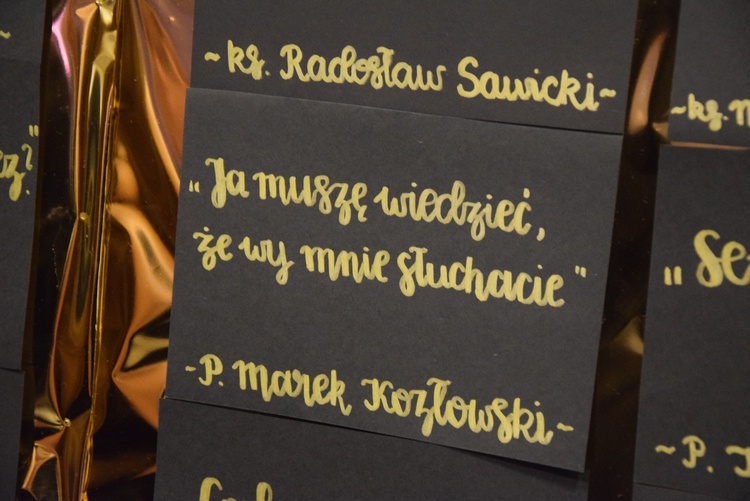 ~ks. Radosław Sawicki~
„Ja muszę wiedzieć,
że wy mnie słuchacie"
~P. Marek Kozłowski~
~ks.
~P.